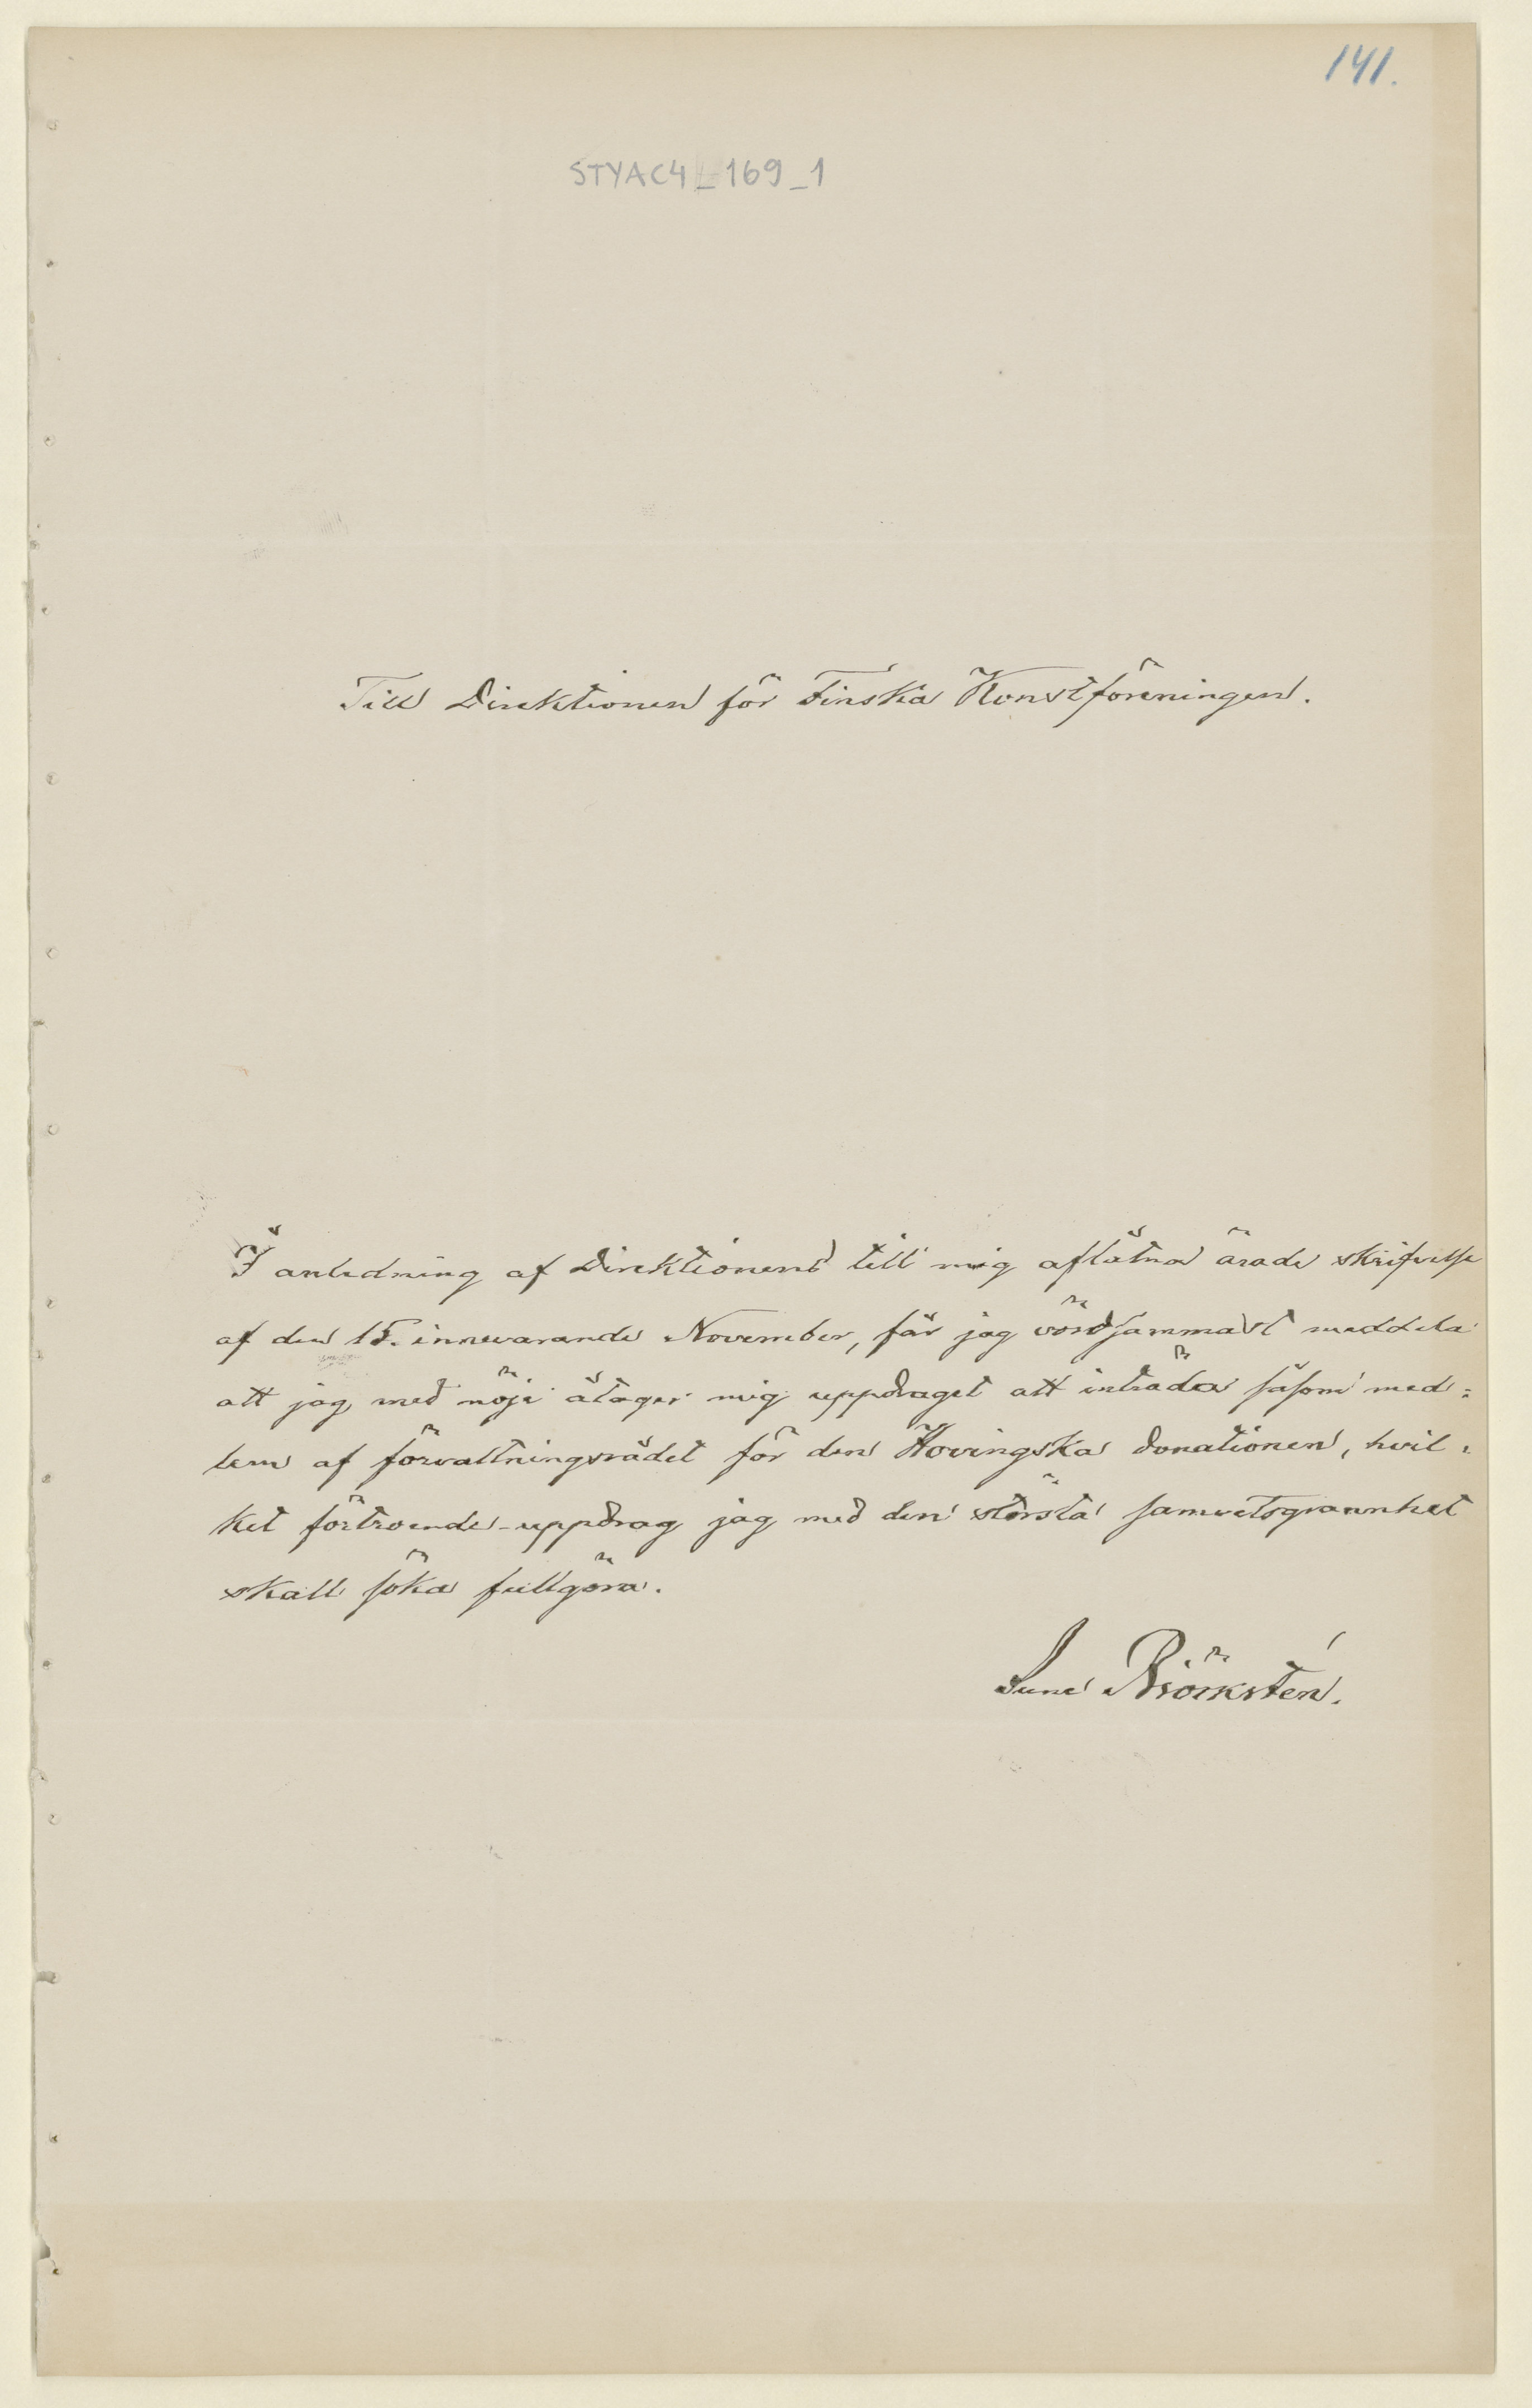 141.
STYAC4_169_1
Till Direktionen för Finska Konstföreningen.
I anledning af Direktionens till mig aflåtna ärade skrifvelse
af den 15. innevarande November, får jag vördsammast meddela
att jag med nöje åtager mig uppdraget att inträda såsom med=
lem af förvaltningsrådet för den Hovingska donationen, hvil=
ket förtroende-uppdrag jag med den största samvetsgrannhet
skall söka fullgöra.
Sune Björkstén.